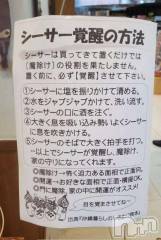 シーサー覚醒の方法
シーサーは買ってきて置くだけでは
【魔除け】の役割を果たしません。
置く前に、必ず【覚醒】させて下さい。
①シーサーに塩を振りかけて清める。
②水をジャブジャブかけて、洗い流す。
③シーサーの口に酒を注ぐ。
④大きく息を吸い込み勢いよくシーサー
に息を吹きかける。
⑤シーサーのそばで大きく拍手を打つ。
～以上でシーサーが覚醒し、魔除け、
家の守りになってくれます。
開運→お好きな面相で正面・横顔OK。
門に、家の中に間運がオススメ!
目を覚まさせてな～